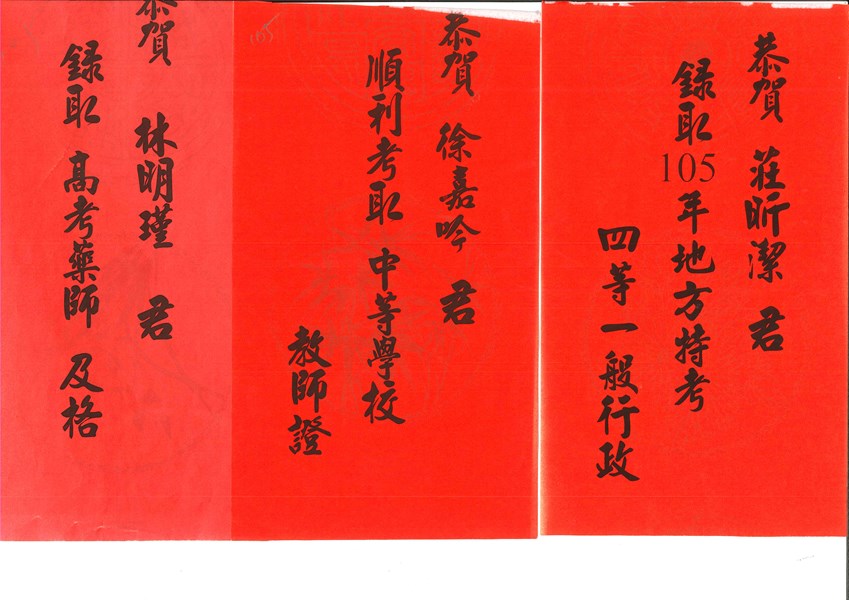 恭賀 莊昕潔 君
錄取105年地方特考
四等一般行政
恭賀 徐嘉吟 君
順利考取 中等學校
教師證
恭賀 林明瑾 君
錄取 高考藥師 及格